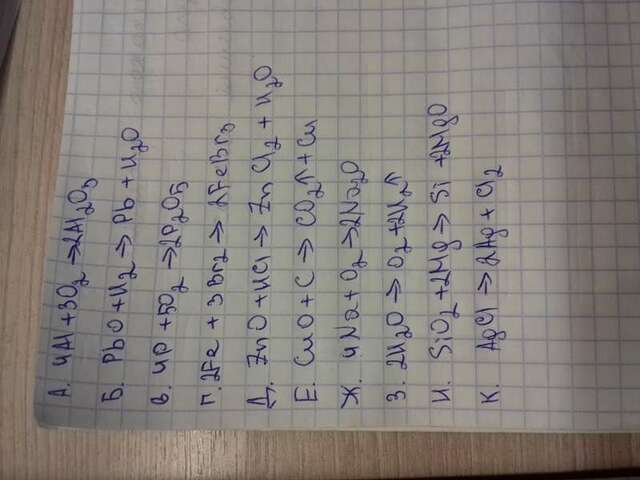 А. 4Al + 3O₂ → 2Al₂O₃
Б. PbO + H₂ → Pb + H₂O
в. 4P + 5O₂ → 2P₂O₅
Г. 2Fe + 3Br₂ → 2FeBr₃
Д. ZnO + HCl → ZnCl₂ + H₂O
Е. CuO + C → CO₂↑ + Cu
Ж. 4Na + O₂ → 2Na₂O
З. 2H₂O → O₂ + 2H₂↑
И. SiO₂ + 2Mg → Si + 2MgO
К. AgCl → 2Ag + Cl₂